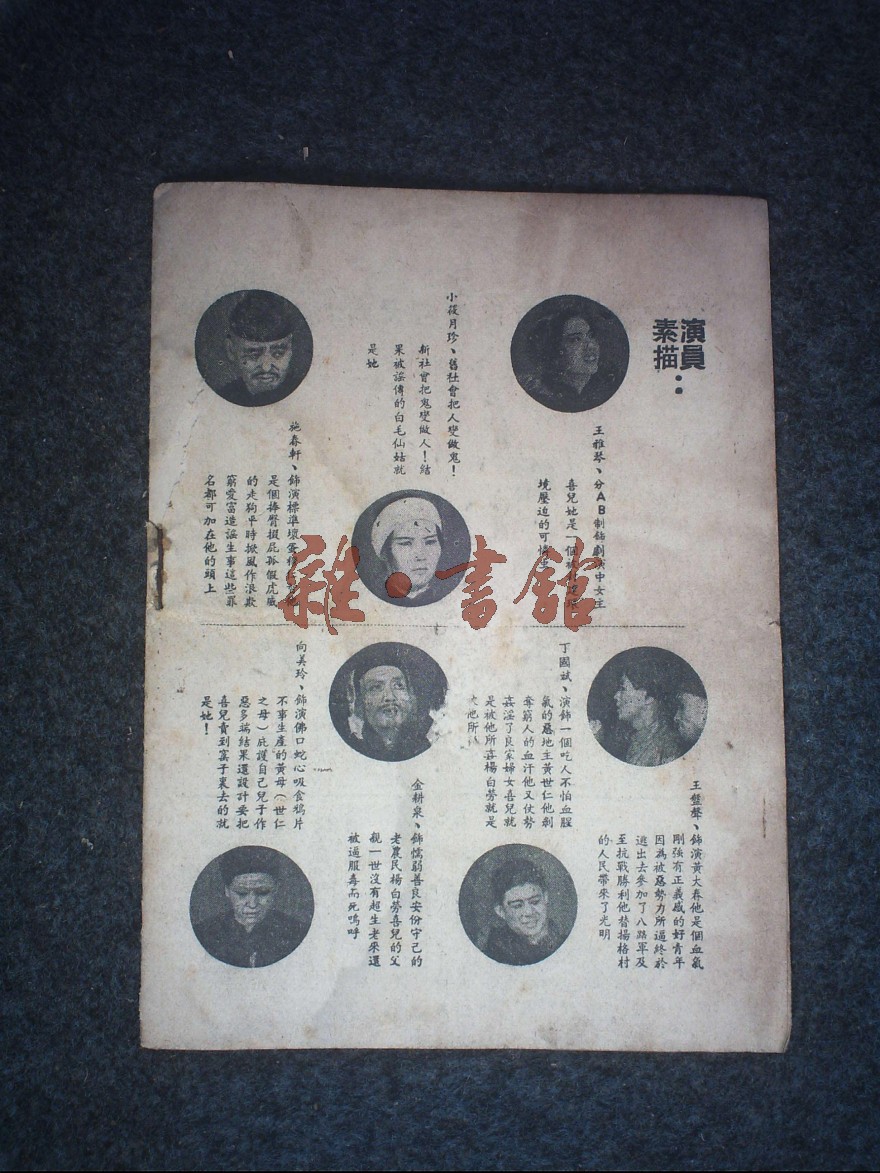 演員
素描：
王雅琴、分AB制飾劇演中女主
喜兒她是一個
境壓迫的可憐
小筱月珍、舊社會把人變做鬼！
新社會把鬼變做人！結
果被謠傳的白毛仙姑就
是她
施春軒、飾演標準壞蛋
是個捧臀掇屁狐假虎威
的走狗平時掀風作浪欺
窮愛富造謠生事這些罪
名都可加在他的頭上
王盤聲、飾演黃大春他是個血氣
剛強有正義感的好青年
因為被惡勢力所逼終於
逃出去參加了八路軍及
至抗戰勝利他替揚格村
的人民帶來了光明
丁國斌、演飾一個吃人不怕血腥
氣的惡地主黃世仁他剝
奪窮人的血汗他又仗勢
姦淫了良家婦女喜兒就
是被他所姦楊白勞就是
他所
金耕泉、飾懦弱善良安份守己的
老農民楊白勞喜兒的父
親一世沒有超生老來還
被逼服毒而死嗚呼
向美玲、飾演佛口蛇心吸食鴉片
不事生產的黃母（世仁
之母）庇護自己兒子作
惡多端結果還設計要把
喜兒賣到窰子裏去的就
是她！
雜·書館